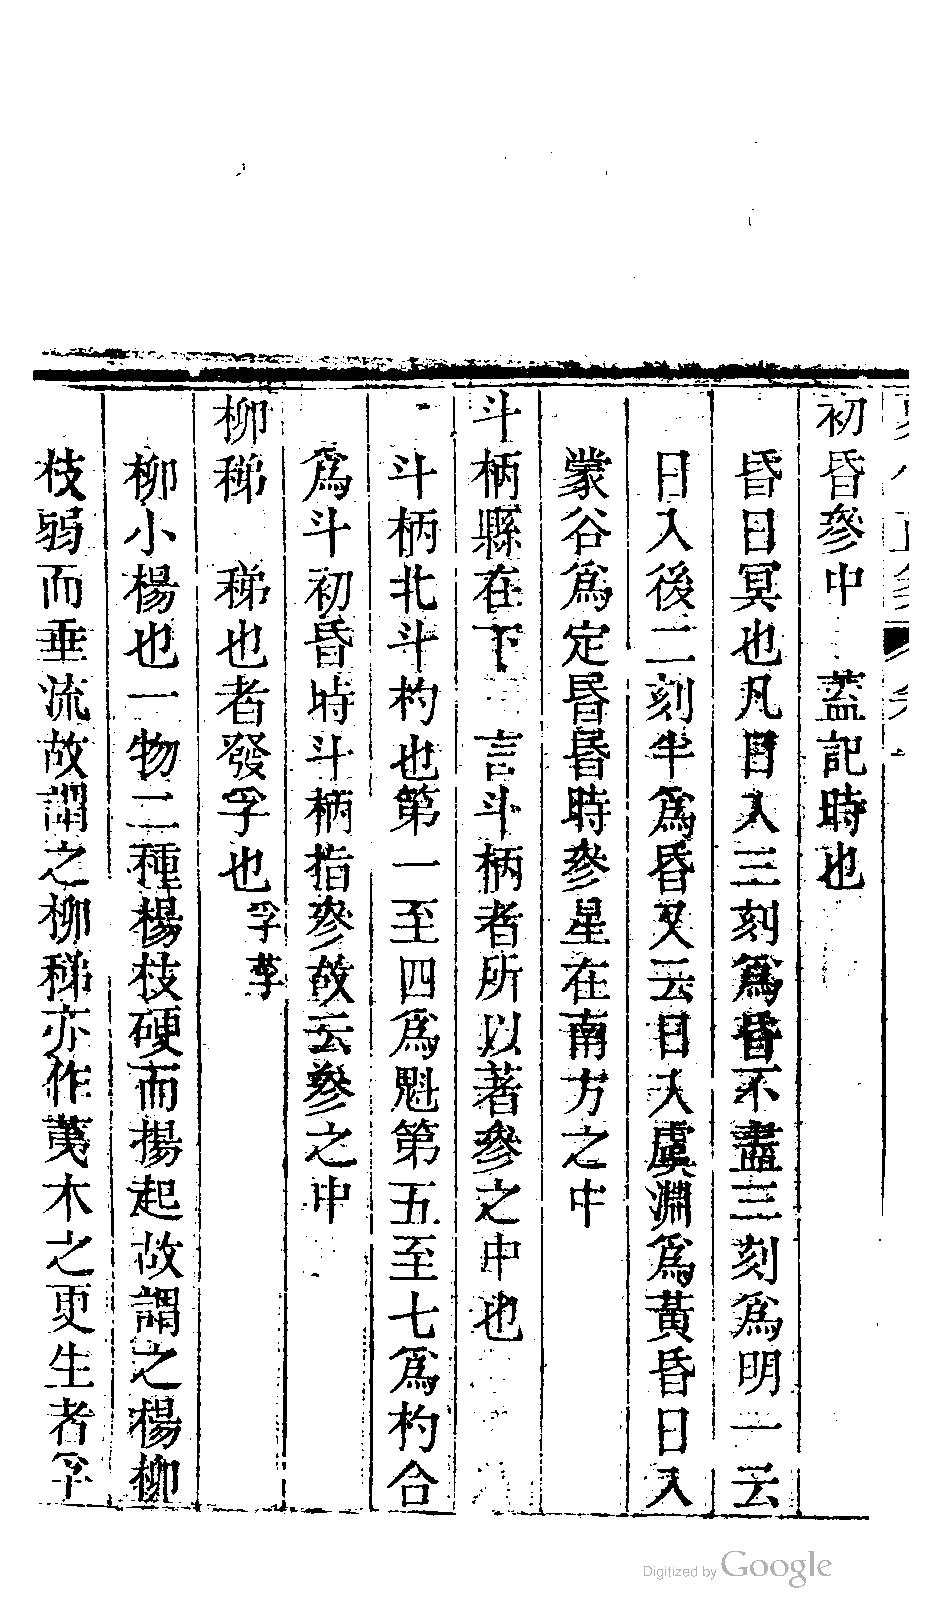 初昏參中　蓋記時也
昏日冥也凡日入三刻爲昏不盡三刻爲明一云
日入後二刻半爲昏又云日入虞淵爲黃昏日入
蒙谷爲定昏昬時參星在南方之中
斗柄縣在下　言斗柄者所以著參之中也
斗柄北斗杓也第一至四爲魁第五至七爲杓合
爲斗初昏時斗柄指參故云參之中
柳稊　稊也者發孚也孚莩
柳小楊也一物二種楊枝硬而揚起故謂之楊柳
枝弱而垂流故謂之柳稊亦作荑木之更生者孚
Digitized by Google